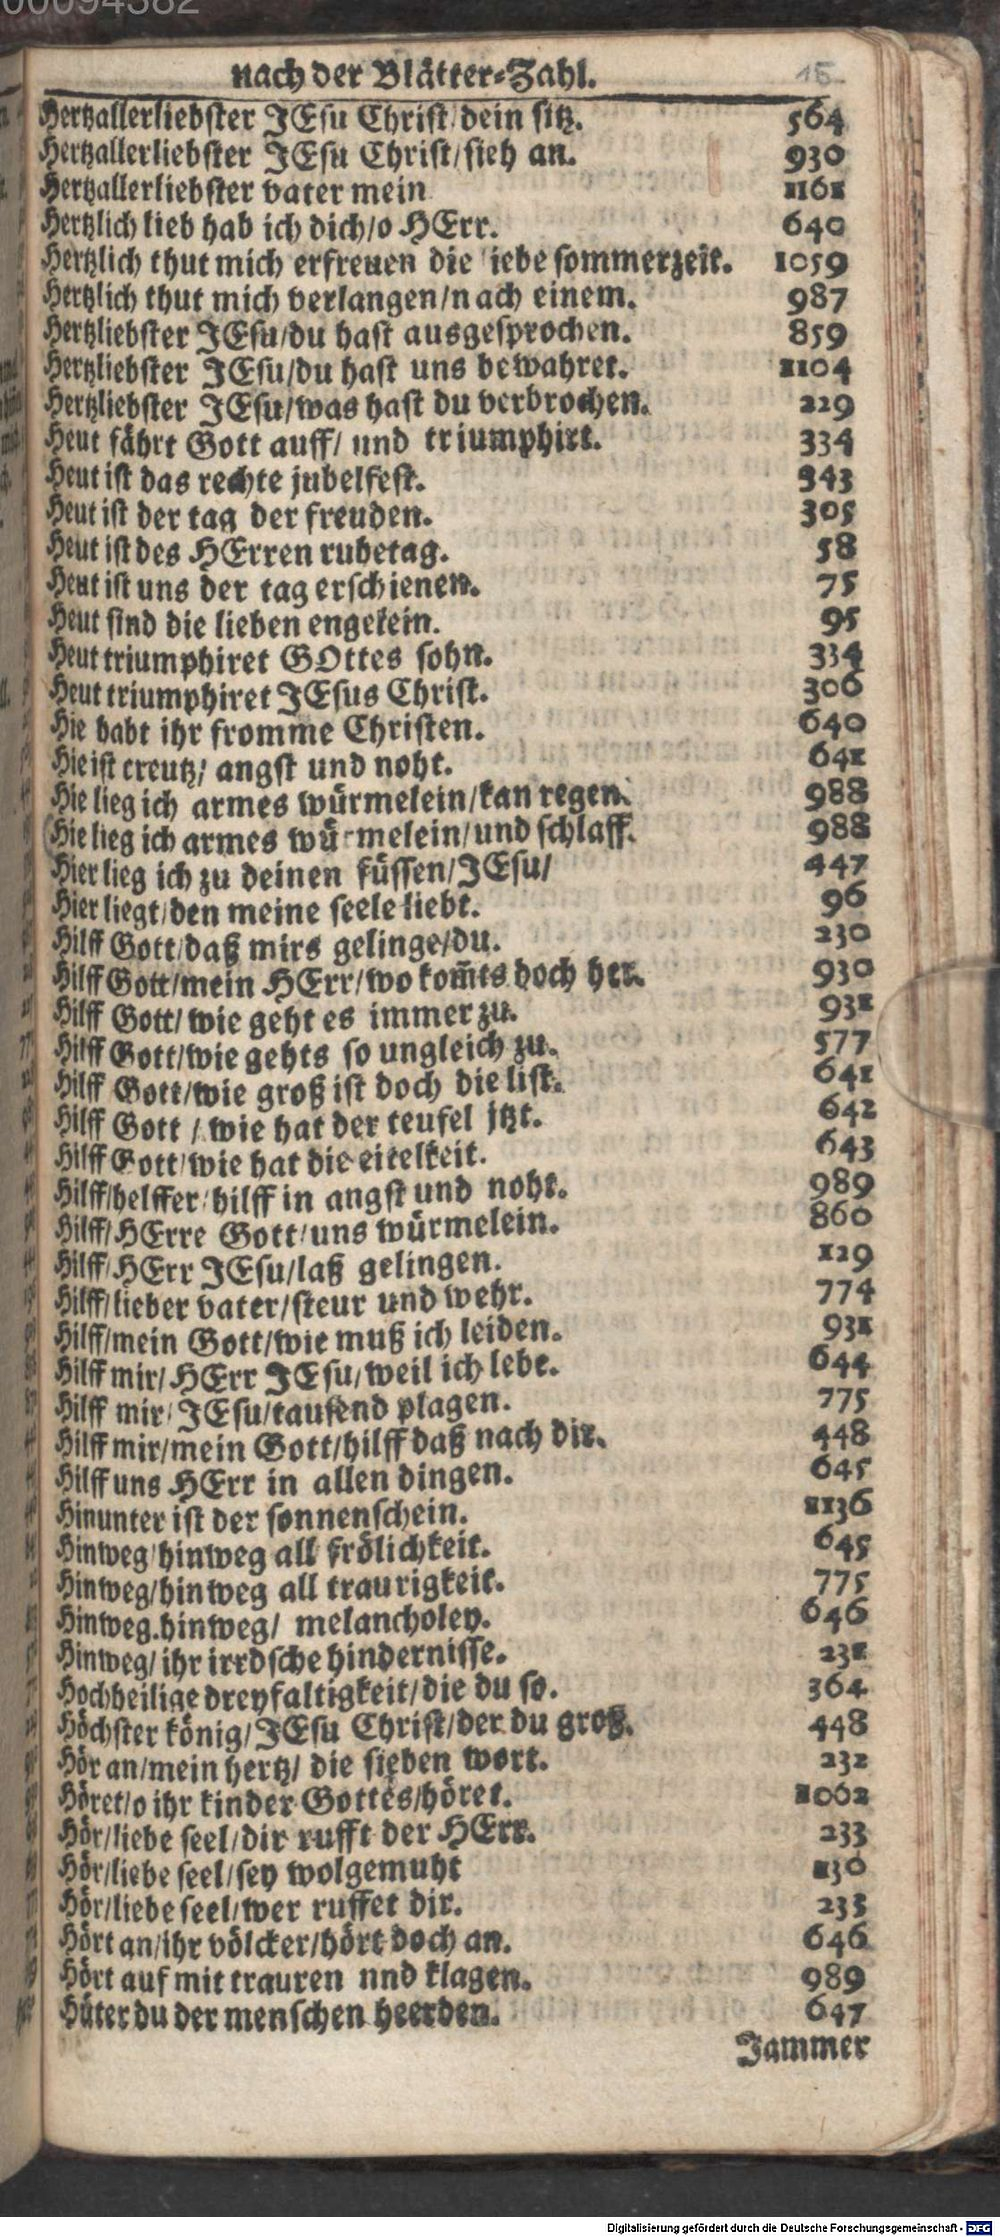 00094382
nach der Blätter-Zahl. 15
Hertzallerliebster JEsu Christ/dein sitz. 564
Hertzallerliebster JEsu Christ/sieh an. 930
Hertzallerliebster vater mein 1161
Hertzlich lieb hab ich dich/o HErr. 640
Hertzlich thut mich erfreuen die iebe sommerzeit. 1059
Hertzlich thut mich verlangen/nach einem. 987
Hertzliebster JEsu/du hast ausgesprochen. 859
Hertzliebster JEsu/du hast uns bewahret. 1104
Hertzliebster JEsu/was hast du verbrochen. 229
Heut fährt Gott auff/ und triumphirt. 334
Heut ist das rechte jubelfest. 343
Heut ist der tag der freuden. 305
Heut ist des HErren ruhetag. 58
Heut ist uns der tag erschienen. 75
Heut sind die lieben engelein. 95
Heut triumphiret GOttes sohn. 334
Heut triumphiret JEsus Christ. 306
Hie habt ihr fromme Christen. 640
Hie ist creutz/ angst und noht. 641
Hie lieg ich armes würmelein/kan regen. 988
Hie lieg ich armes wü melein/und schlaff. 988
Hier lieg ich zu deinen füssen/JEsu/ 447
Hier liegt/den meine seele liebt. 96
Hilff Gott/daß mirs gelinge/du. 230
Hilff Gott/mein HErr/wo kom̃ts doch her. 930
Hilff Gott/wie geht es immer zu. 931
Hilff Gott/wie gehts so ungleich zu. 577
Hilff Gott/wie groß ist doch die list. 641
Hilff Gott / wie hat der teufel jtzt. 642
Hilff Gott/wie hat die eitelkeit. 643
Hilff/helffer/hilff in angst und noht. 989
Hilff/HErre Gott/uns würmelein. 860
Hilff/HErr JEsu/laß gelingen. 129
Hilff/lieber vater/steur und wehr. 774
Hilff/mein Gott/wie muß ich leiden. 931
Hilff mir/HErr JEsu/weil ich lebe. 644
Hilff mir/JEsu/tausend plagen. 775
Hilff mir/mein Gott/hilff daß nach dir. 448
Hilff uns HErr in allen dingen. 645
Hinunter ist der sonnenschein. 1136
Hinweg/hinweg all frölichkeit. 645
Hinweg/hinweg all traurigkeit. 775
Hinweg.hinweg/ melancholey. 646
Hinweg/ihr irrdsche hindernisse. 231
Hochheilige dreyfaltigkeit/die du so. 364
Höchster könig/JEsu Christ/der du groß. 448
Hör an/mein hertz/ die sieben wort. 232
Höret/o ihr kinder Gottes/höret. 1062
Hör/liebe seel/dir rufft der HErr. 233
Hör/liebe seel/sey wolgemuht 130
Hör/liebe seel/wer ruffet dir. 233
Hört an/ihr völcker/hört doch an. 646
Hört auf mit trauren nnd klagen. 989
Hüter du der menschen heerden. 647
Jammer
Digitalisierung gefördert durch die Deutsche Forschungsgemeinschaft - DFG